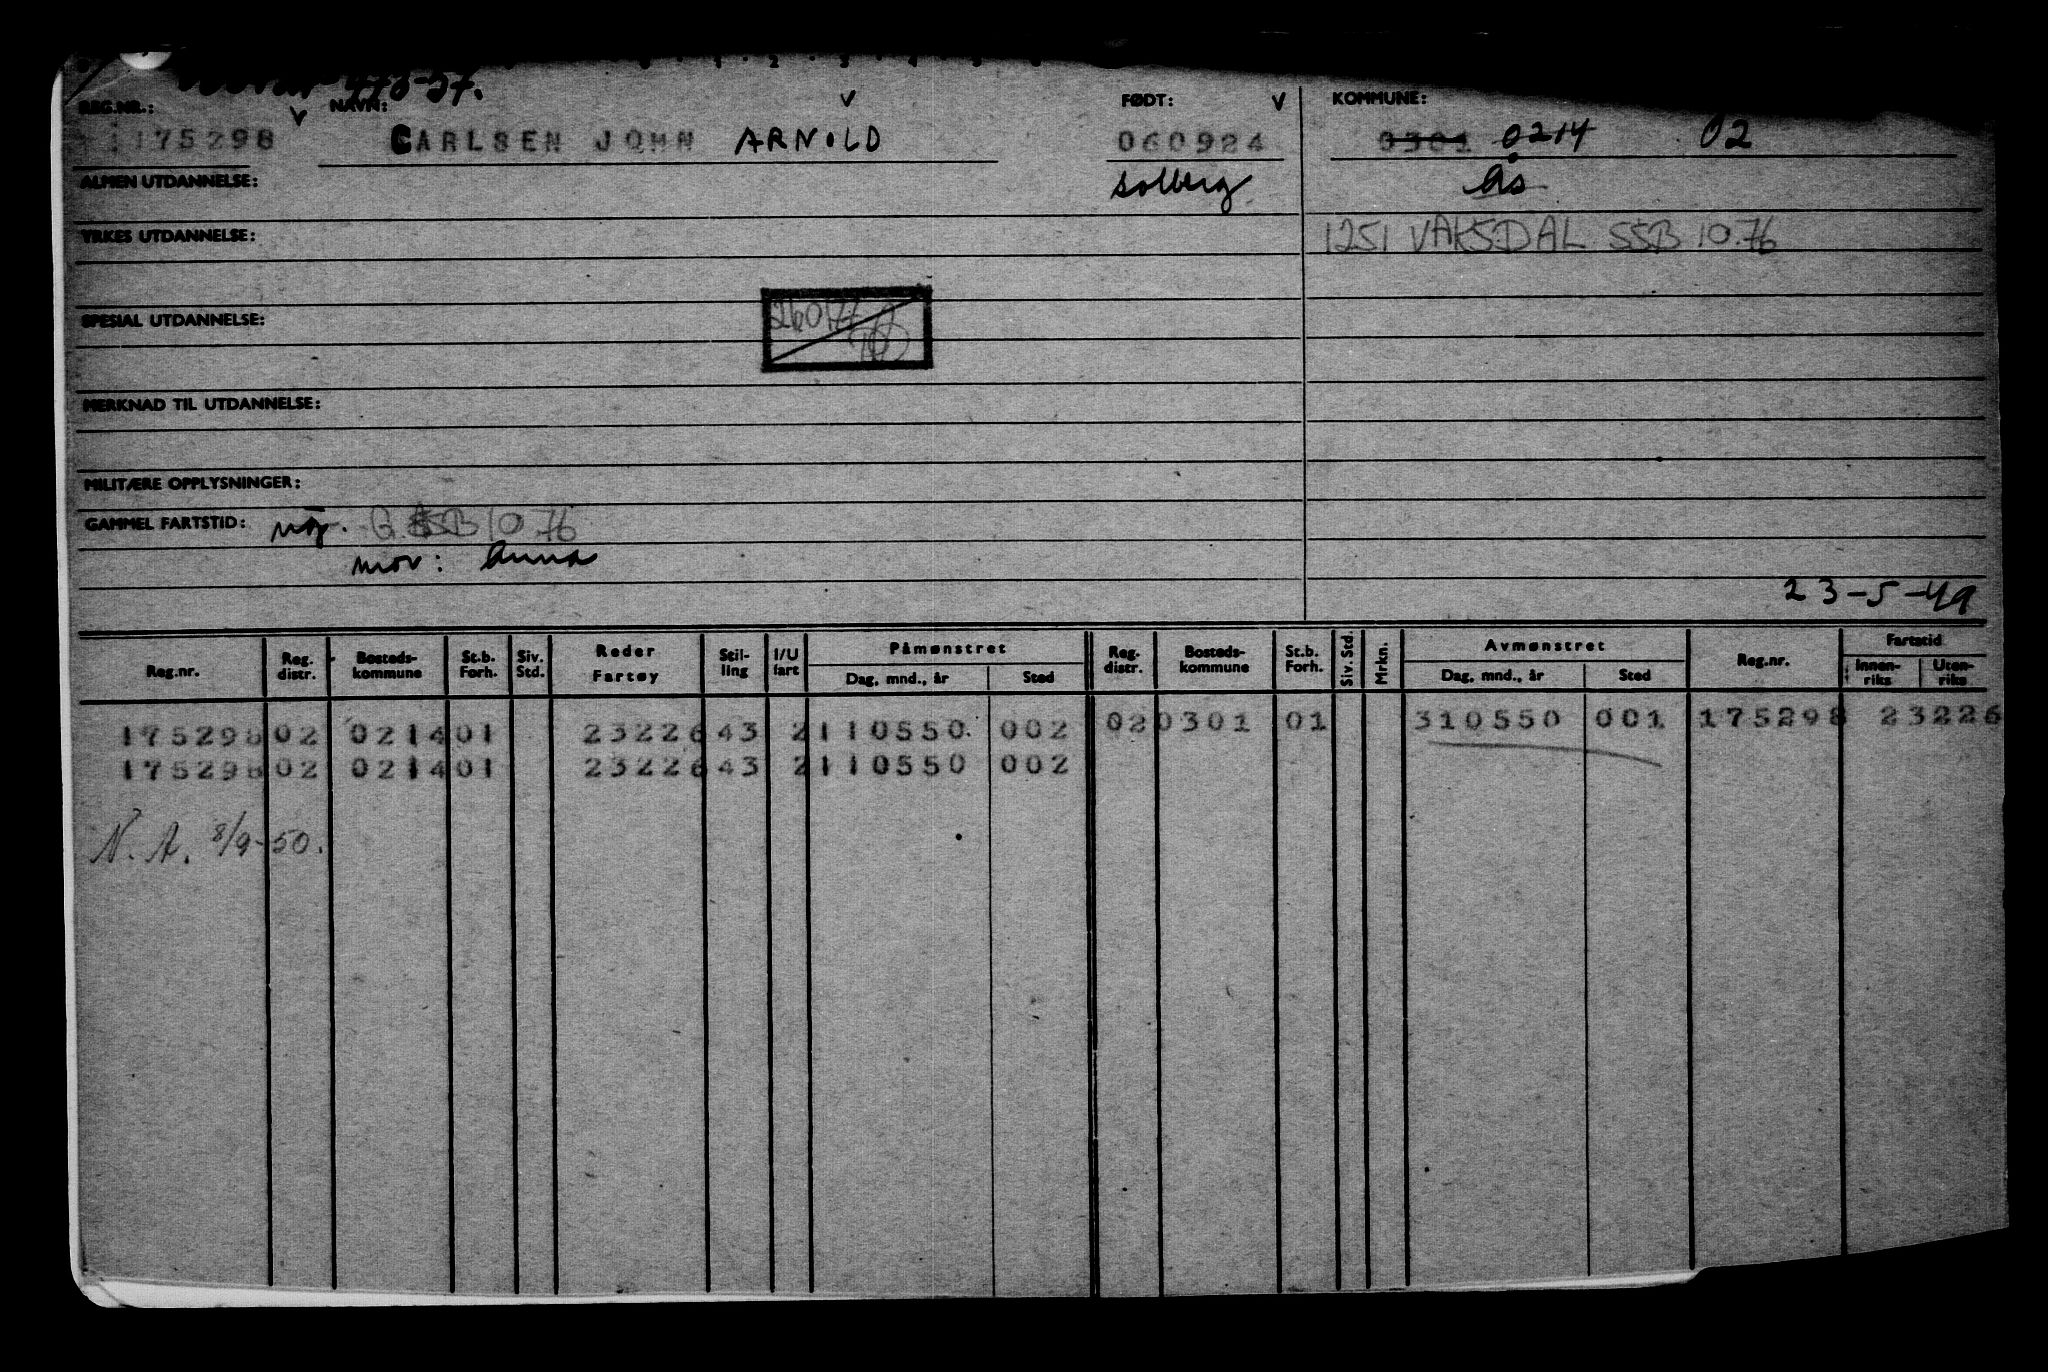 478-57.
REG.NR.: v NAVN: v FØDT: v KOMMUNE:
175298 CARLSEN JOHN ARNOLD 060924 0301 0214 02
ALMEN UTDANNELSE: Solberg Ås
YRKES UTDANNELSE: 1251 VAKSDAL SSB 10.76
260177
SPESIAL UTDANNELSE:
MERKNAD TIL UTDANNELSE:
MILITÆRE OPPLYSNINGER:
GAMMEL FARTSTID: G. SSB 10 76
mor: Anna
23-5-49
Reg.nr. Reg. distr. Bosteds- kommune St.b. Forh. Siv. Std. Reder Fartøy Stil- ling I/U fart Påmønstret Dag, mnd., år Sted Reg. distr. Bosteds- kommune St.b. Forh. Siv. Std. Mrkn. Avmønstret Dag, mnd., år Sted Reg.nr. Fartstid Innen- riks Uten- riks
175298 02 0214 01 23226 43 2 110550 002 02 0301 01 310550 001 175298 23226
175298 02 0214 01 23226 43 2 110550 002
N.A. 8/9-50.